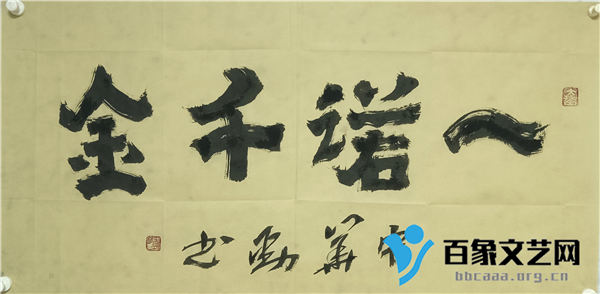 一诺千金
书
百象文艺网
bbcaaa.org.cn